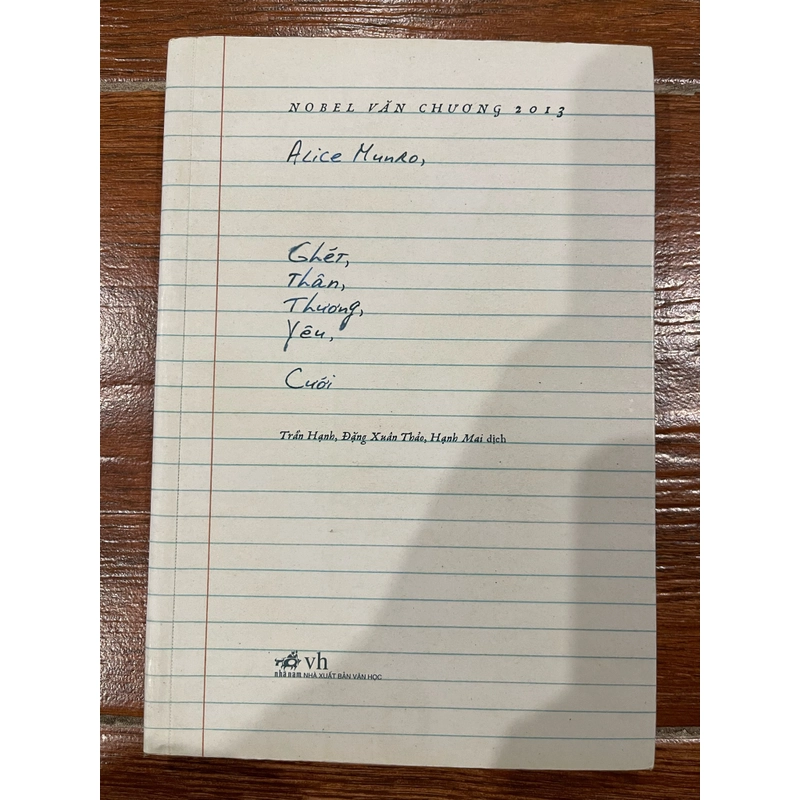 NOBEL VĂN CHƯƠNG 2013
Alice Munro,
Ghét,
Thân,
Thương,
Yêu,
Cưới
Trần Hạnh, Đặng Xuân Thảo, Hạnh Mai dịch
vh
nhã nam NHÀ XUẤT BẢN VĂN HỌC